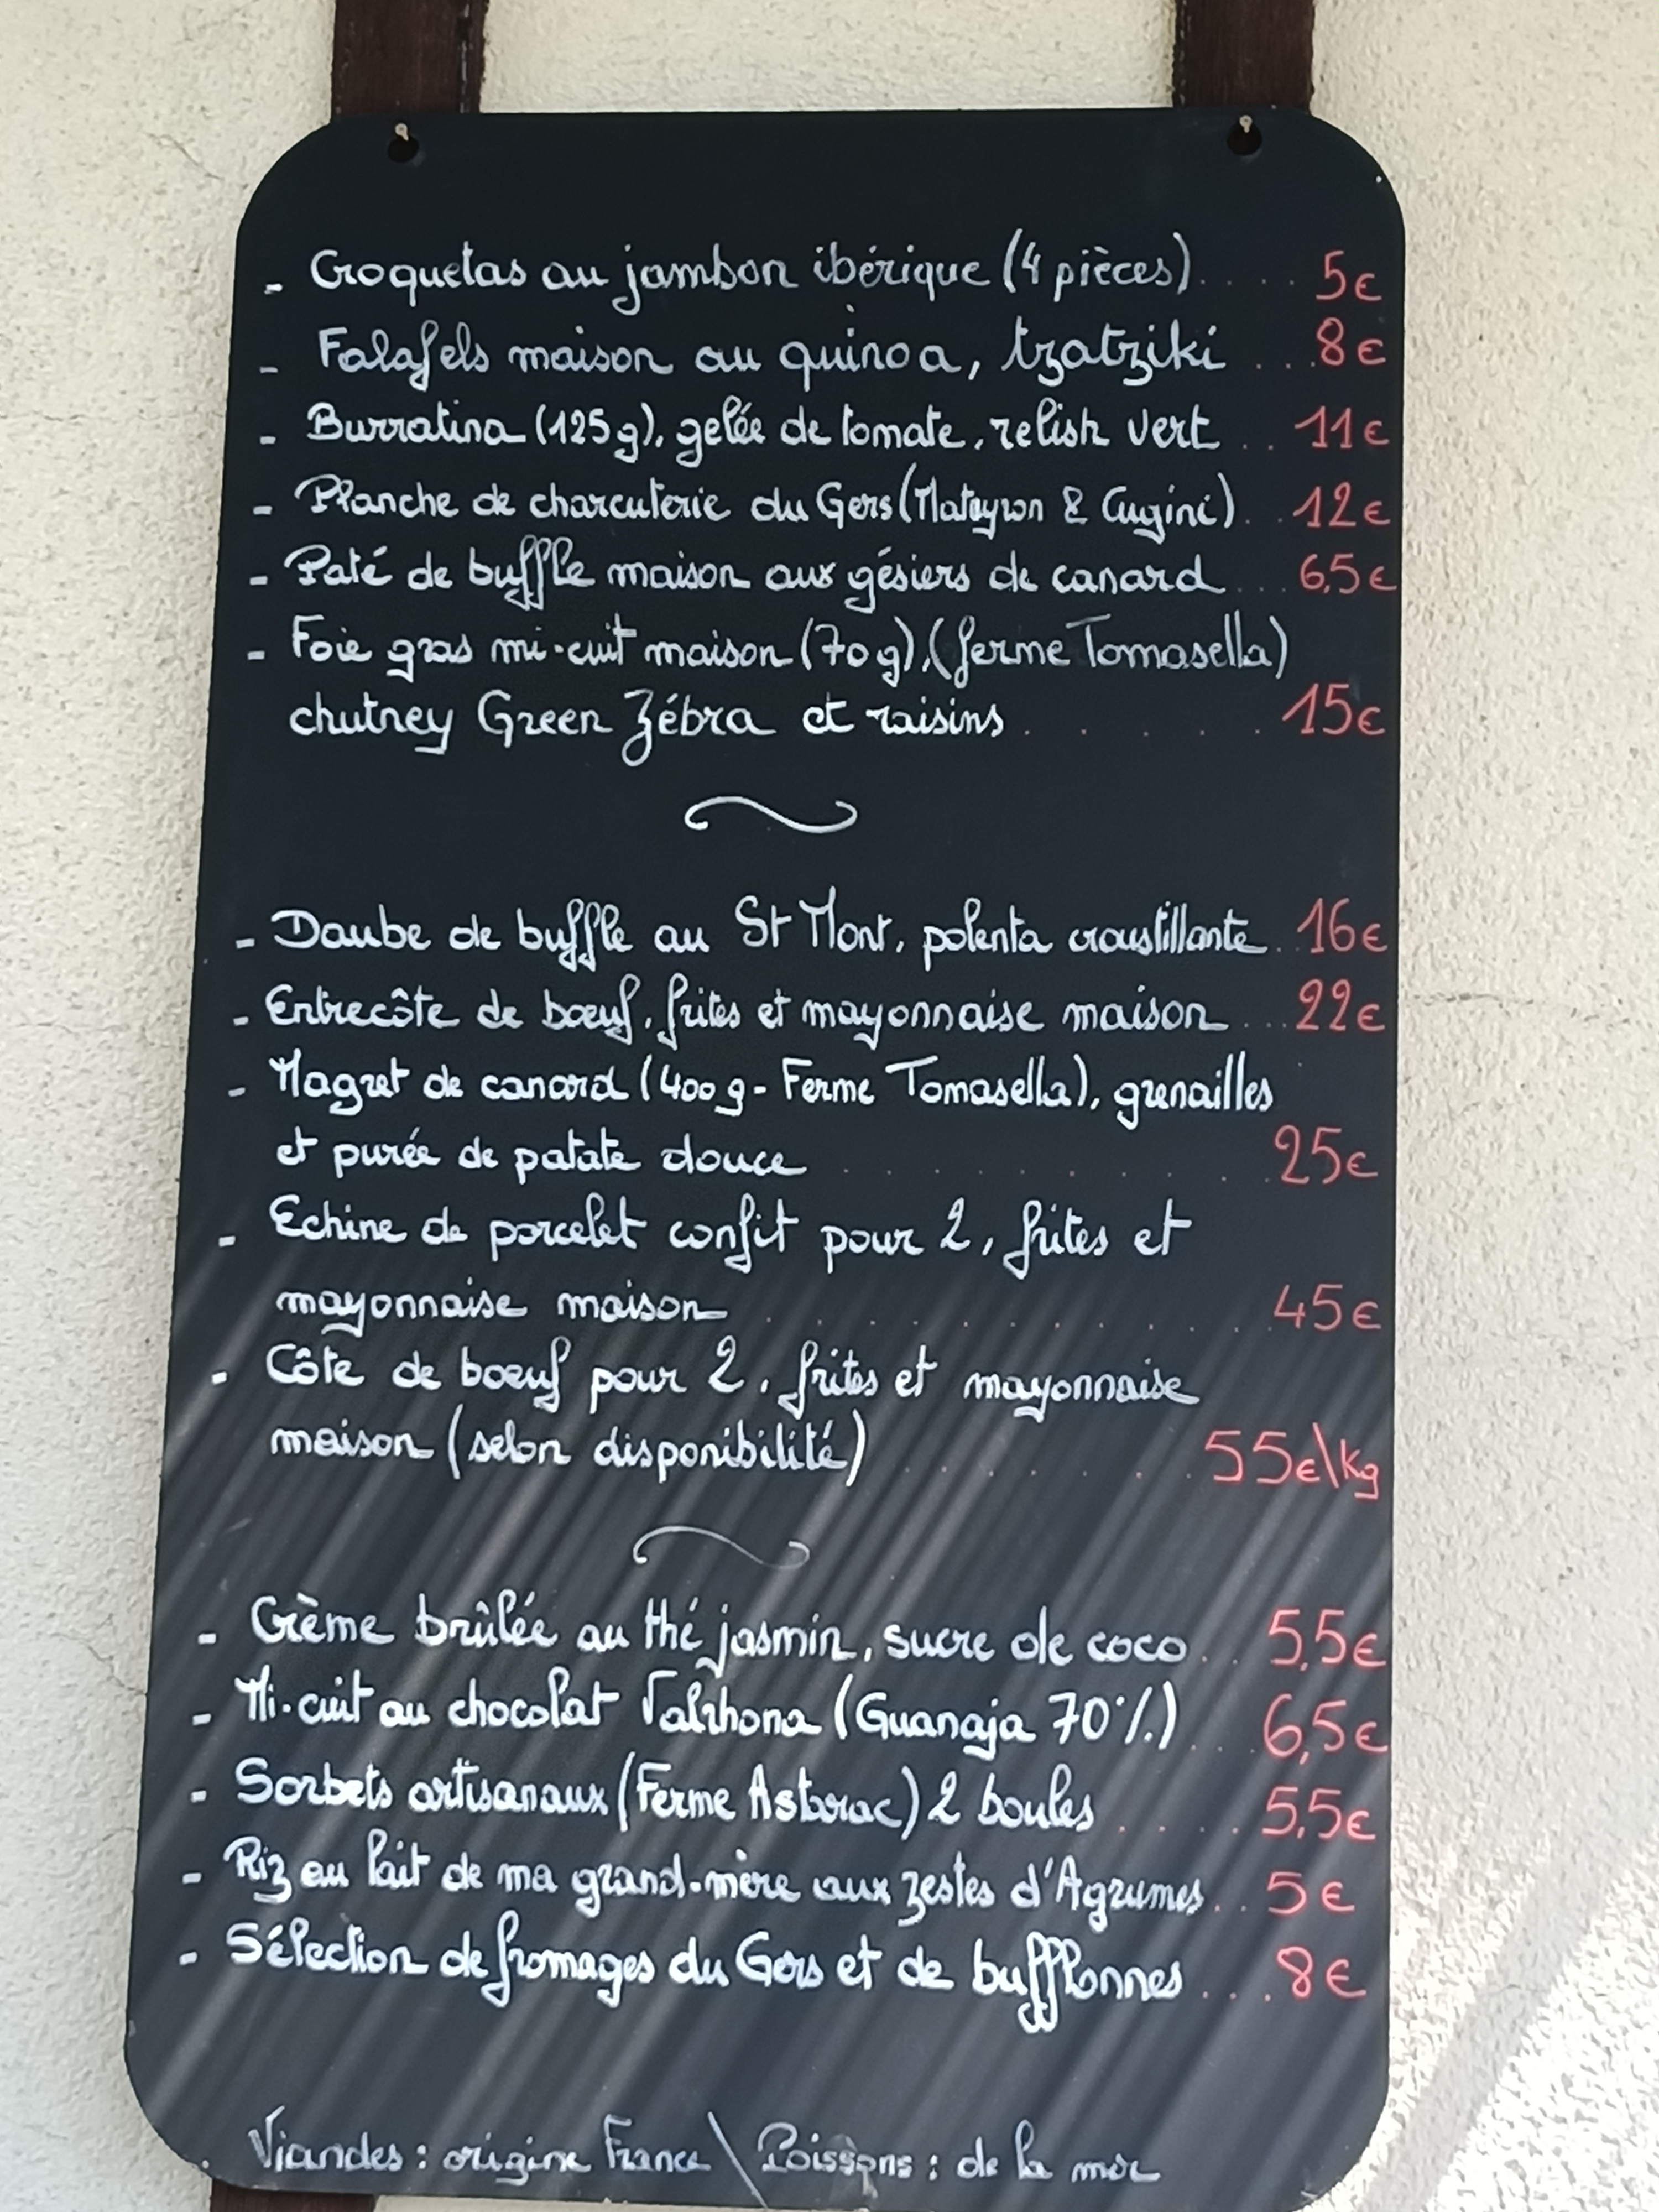 - Croquetas au jambon ibérique (4 pièces) .... 5€
- Falafels maison au quinoa, tzatziki ... 8€
- Burratina (125g), gelée de tomate, relish vert .. 11€
- Planche de charcuterie du Gers (Mateyron & Cugini) .. 12€
- Paté de buffle maison aux gésiers de canard ... 6,5€
- Foie gras mi-cuit maison (70g), (ferme Tomasella)
chutney Green Zébra et raisins ..... 15€
- Daube de buffle au St Mont, polenta croustillante . 16€
- Entrecôte de bœuf, frites et mayonnaise maison ... 22€
- Magret de canard (400g - Ferme Tomasella), grenailles
et purée de patate douce ......... 25€
- Echine de porcelet confit pour 2, frites et
mayonnaise maison .......... 45€
- Côte de bœuf pour 2, frites et mayonnaise
maison (selon disponibilité) ....... 55€\kg
- Crème brûlée au thé jasmin, sucre de coco .. 5,5€
- Mi-cuit au chocolat Valrhona (Guanaja 70%) .. 6,5€
- Sorbets artisanaux (Ferme Astarac) 2 boules .... 5,5€
- Riz au lait de ma grand-mère aux zestes d'Agrumes .. 5€
- Sélection de fromages du Gers et de bufflonnes ... 8€
Viandes : origine France \ Poissons : de la mer